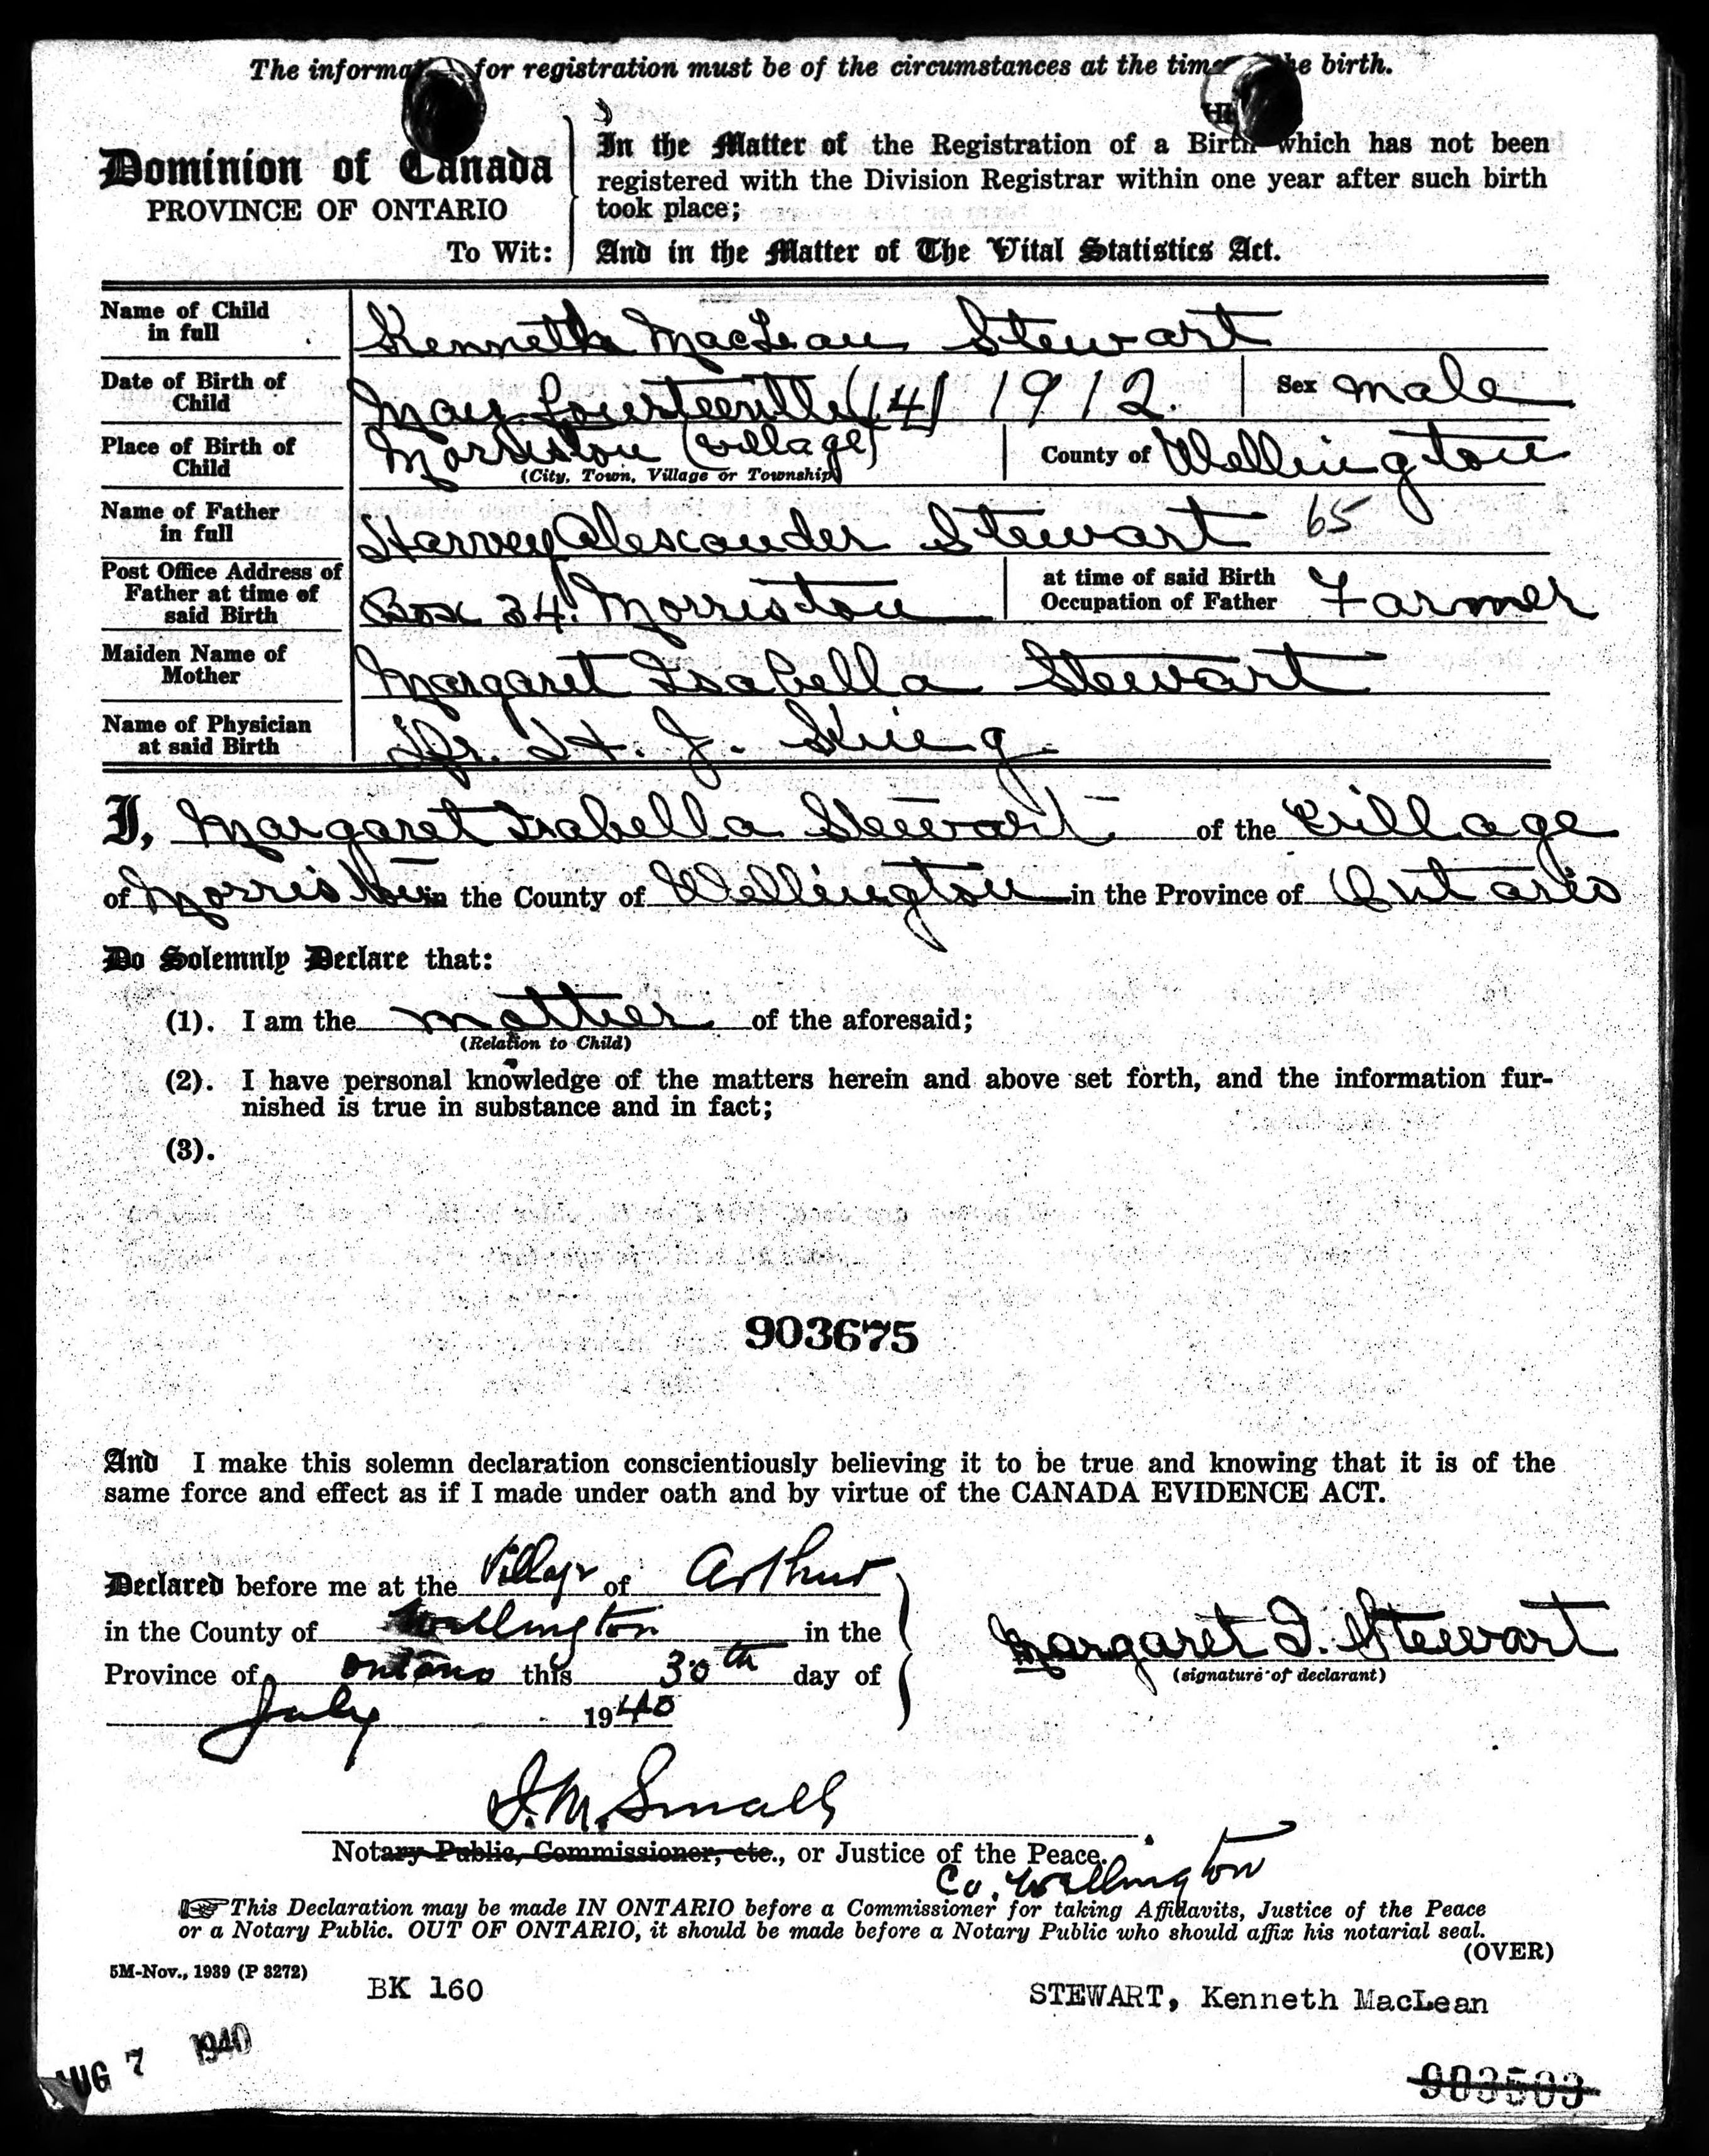 The informa for registration must be of the circumstances at the time he birth.
Dominion of Canada
PROVINCE OF ONTARIO
To Wit:
In the Matter of the Registration of a Birth which has not been
registered with the Division Registrar within one year after such birth
took place;
And in the Matter of The Vital Statistics Act.
Name of Child
in full
Kenneth MacLean Stewart
Date of Birth of
Child
May fourteenth (14) 1912. Sex male
Place of Birth of
Child
Morriston (village) County of Wellington
(City, Town, Village or Township)
Name of Father
in full
Harvey Alexander Stewart 65
Post Office Address of
Father at time of
said Birth
Box 34. Morriston
at time of said Birth
Occupation of Father Farmer
Maiden Name of
Mother
Margaret Isabella Stewart
Name of Physician
at said Birth
Dr. H. J. King.
I, Margaret Isabella Stewart of the Village
of Morriston in the County of Wellington in the Province of Ontario
Do Solemnly Declare that:
(1). I am the mother of the aforesaid;
(Relation to Child)
(2). I have personal knowledge of the matters herein and above set forth, and the information fur-
nished is true in substance and in fact;
(3).
903675
And I make this solemn declaration conscientiously believing it to be true and knowing that it is of the
same force and effect as if I made under oath and by virtue of the CANADA EVIDENCE ACT.
Declared before me at the Village of Arthur
in the County of Wellington in the
Province of Ontario this 30th day of
July 1940
Margaret I. Stewart
(signature of declarant)
J. M. Small
Notary Public, Commissioner, etc., or Justice of the Peace.
Co. Wellington
This Declaration may be made IN ONTARIO before a Commissioner for taking Affidavits, Justice of the Peace
or a Notary Public. OUT OF ONTARIO, it should be made before a Notary Public who should affix his notarial seal.
(OVER)
5M-Nov., 1939 (P 3272)
BK 160
STEWART, Kenneth MacLean
AUG 7 1940
903503